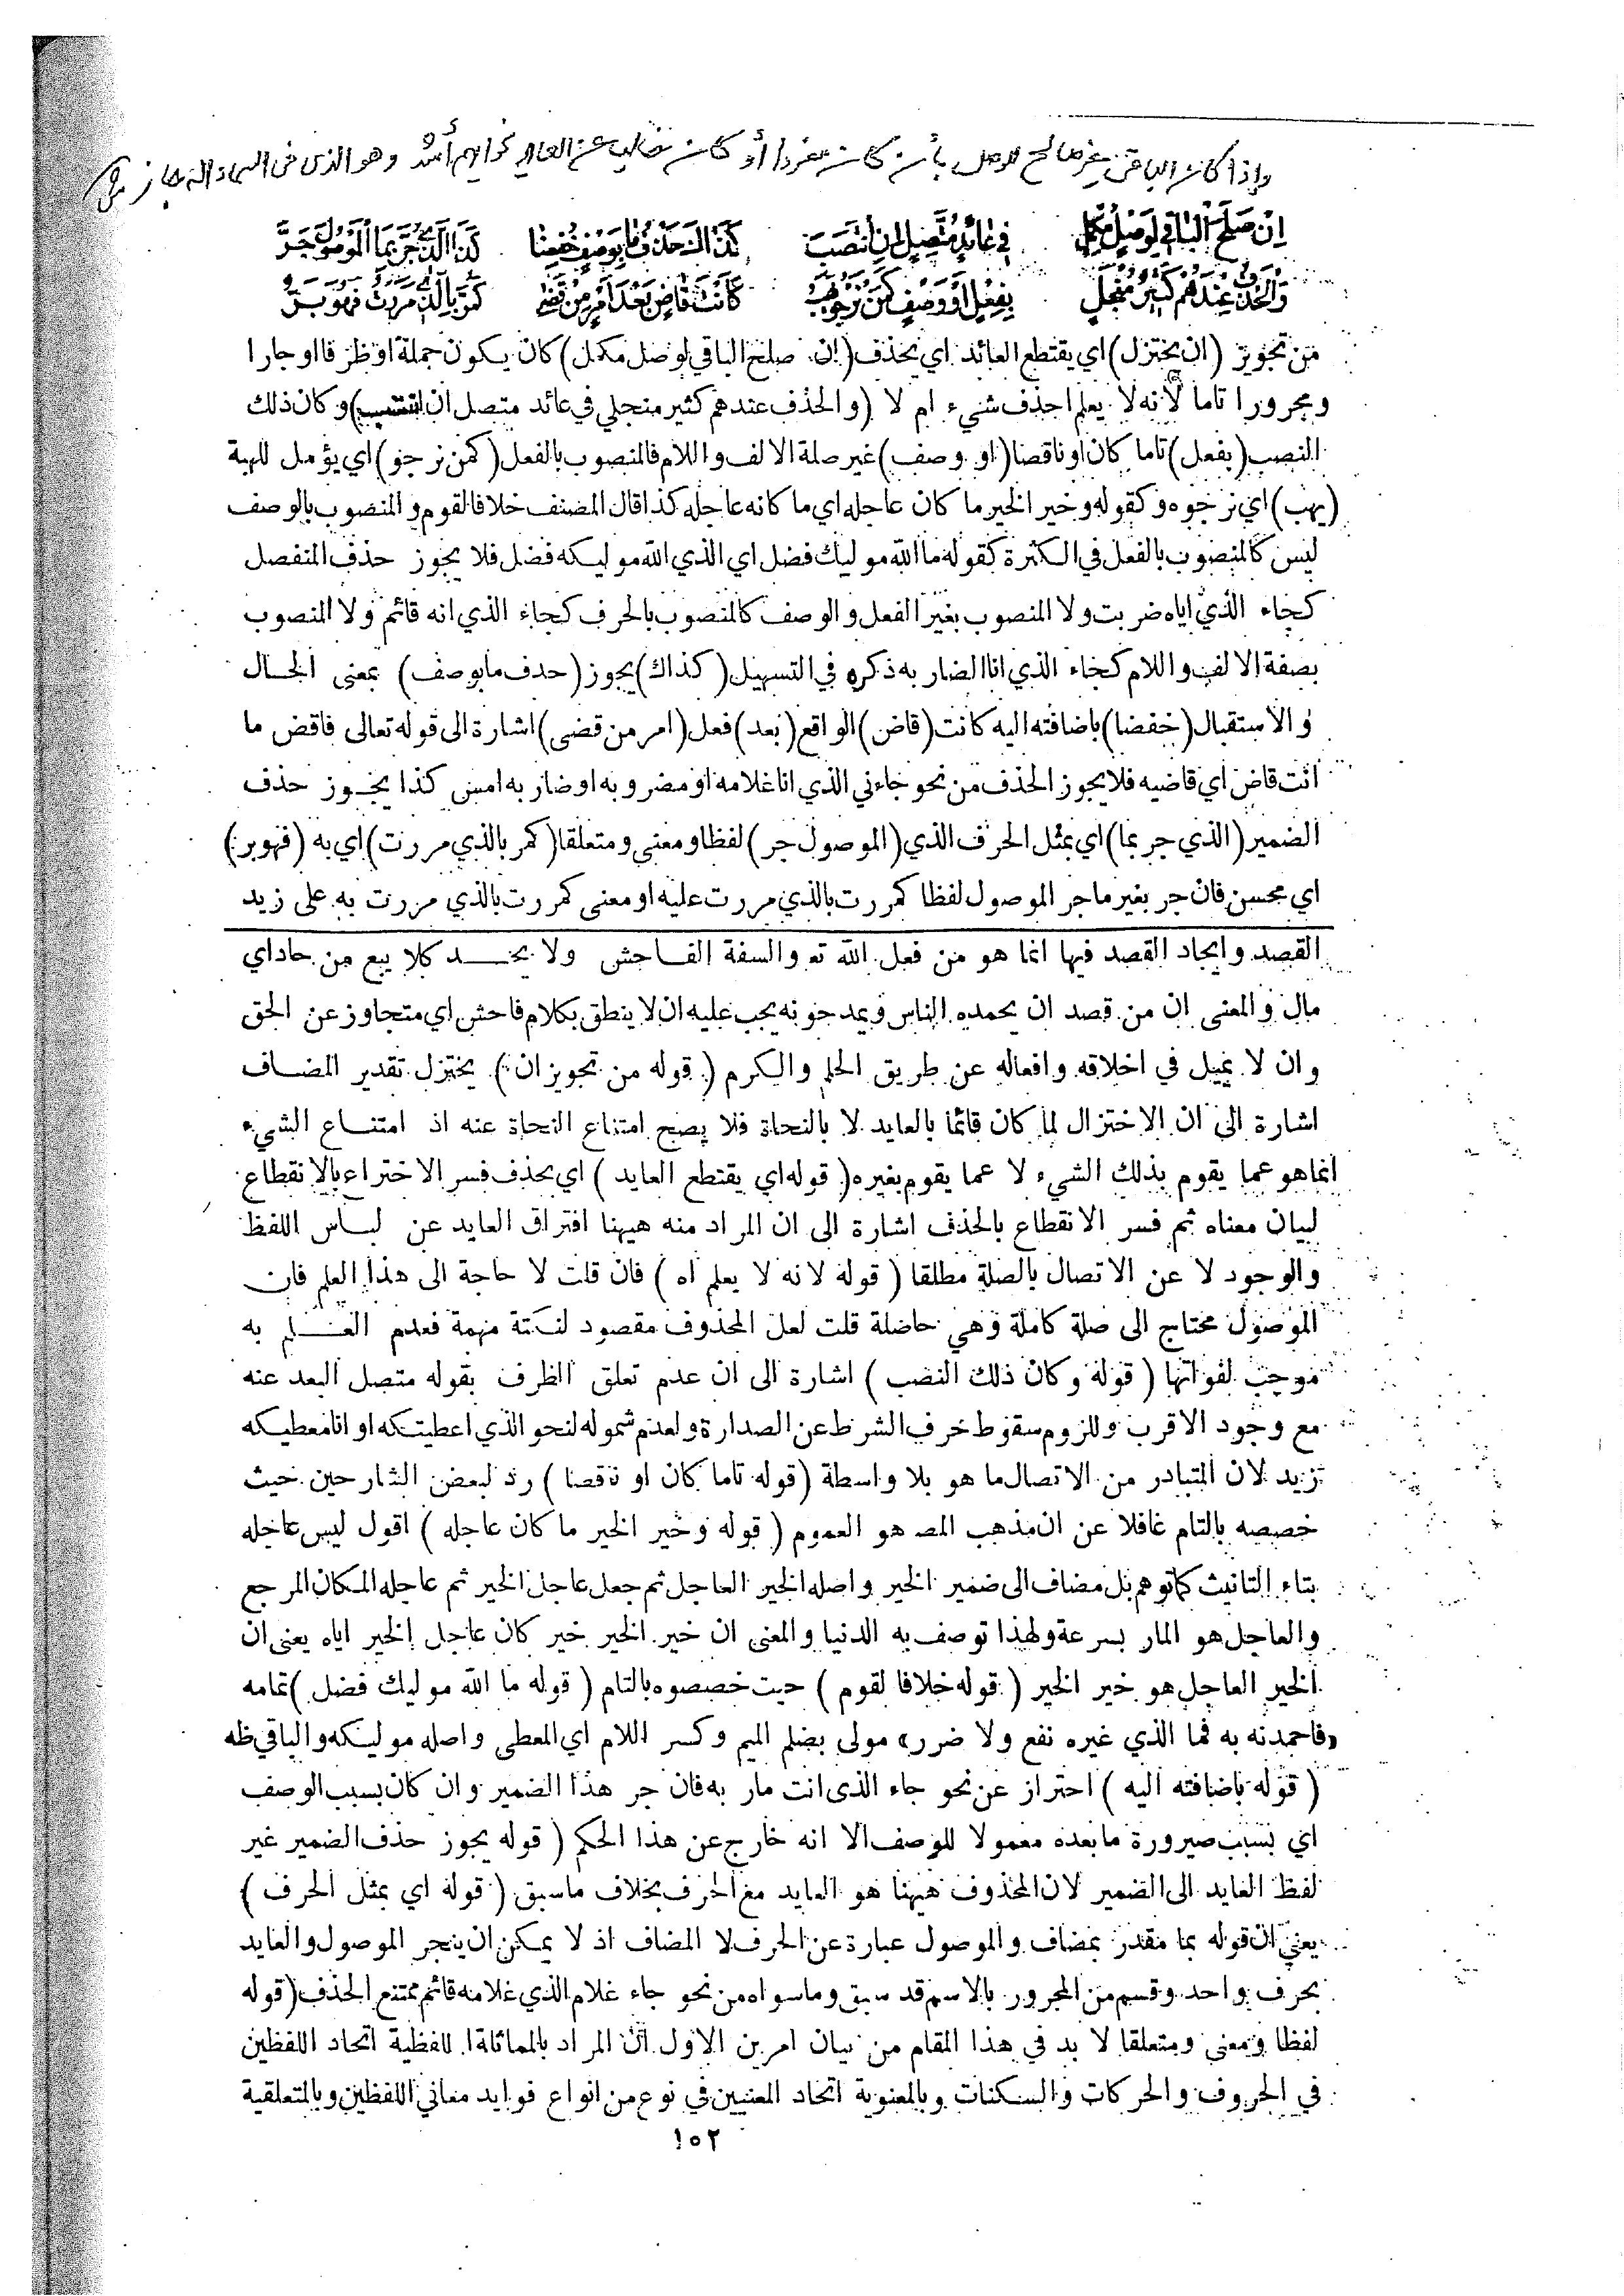 وإذا كان الباقي غير صالح للوصل بأن كان مفردا أو كان خاليا عن العائد نحو أيهم أشد وهو الذي في السماء إله جاز
اِنْ صَلَحَ الْباقي لِوَصْلٍ مُكْمِلٍ في عائِدٍ مُتَّصِلٍ اِنِ انْتَصَبَ كَذاكَ حَذْفُ ما بِوَصْفٍ خُفِضا كَذَا الَّذي جُرَّ بِمَا الْمَوْصُولَ جَرَّ
وَالْحَذْفُ عِنْدَهُمْ كَثيرٌ مُنْجَلي بِفِعْلٍ اَوْ وَصْفٍ كَمَنْ نَرْجُو يَهَبْ كَاَنْتَ قاضٍ بَعْدَ اَمْرٍ مِنْ قَضى كَمُرَّ بِالَّذي مَرَرْتُ فَهْوَ بَرٌّ
من تجويز (ان يختزل) اي يقتطع العائد اي يحذف (ان صلح الباقي لوصل مكمل) كان يكون جملة او ظرفا او جارا
ومجرورا تاما لأنه لا يعلم احذف شيء ام لا (والحذف عندهم كثير منجلي في عائد متصل ان انتصب) وكان ذلك
النصب (بفعل) تاما كان او ناقصا (او وصف) غير صلة الالف واللام فالمنصوب بالفعل (كمن نرجو) اي يؤمل للهبة
(يهب) اي نرجوه وكقوله وخير الخير ما كان عاجله اي ما كانه عاجله كذا قال المصنف خلافا لقوم والمنصوب بالوصف
ليس كالمنصوب بالفعل في الكثرة كقوله ما الله موليك فضل اي الذي الله موليكه فضل فلا يجوز حذف المنفصل
كجاء الذي اياه ضربت ولا المنصوب بغير الفعل والوصف كالمنصوب بالحرف كجاء الذي انه قائم ولا المنصوب
بصفة الالف واللام كجاء الذي انا الضاربه ذكره في التسهيل (كذاك) يجوز (حذف ما بوصف) بمعنى الحال
والاستقبال (خفضا) باضافته اليه كانت (قاض) الواقع (بعد) فعل (امر من قضى) اشارة الى قوله تعالى فاقض ما
انت قاض اي قاضيه فلا يجوز الحذف من نحو جاءني الذي انا غلامه او مضروبه او ضاربه امس كذا يجوز حذف
الضمير (الذي جر بما) اي بمثل الحرف الذي (الموصول جر) لفظا ومعنى ومتعلقا (كمر بالذي مررت) اي به (فهو بر)
اي محسن فان جر بغير ما جر الموصول لفظا كمررت بالذي مررت عليه او معنى كمررت بالذي مررت به على زيد
القصد وايجاد القصد فيها انما هو من فعل الله تع والسفة الفاحش ولا يحد كلا يبع من حاد اي
مال والمعنى ان من قصد ان يحمده الناس ويمدحونه يجب عليه ان لا ينطق بكلام فاحش اي متجاوز عن الحق
وان لا يميل في اخلاقه وافعاله عن طريق الحلم والكرم ( قوله من تجويز ان ) يختزل تقدير المضاف
اشارة الى ان الاختزال لما كان قائما بالعايد لا بالنحاة فلا يصح امتناع النحاة عنه اذ امتناع الشيء
انما هو عما يقوم بذلك الشيء لا عما يقوم بغيره ( قوله اي يقتطع العايد ) اي يحذف فسر الاختراء بالانقطاع
لبيان معناه ثم فسر الانقطاع بالحذف اشارة الى ان المراد منه هيهنا افتراق العايد عن لباس اللفظ
والوجود لا عن الاتصال بالصلة مطلقا ( قوله لانه لا يعلم اه ) فان قلت لا حاجة الى هذا العلم فان
الموصول محتاج الى صلة كاملة وهي حاصلة قلت لعل المحذوف مقصود لنكتة مهمة فعدم العلم به
موجب لفواتها ( قوله وكان ذلك النصب ) اشارة الى ان عدم تعلق الظرف بقوله متصل البعد عنه
مع وجود الاقرب وللزوم سقوط حرف الشرط عن الصدارة ولعدم شموله لنحو الذي اعطيتكه او انا معطيكه
زيد لان المتبادر من الاتصال ما هو بلا واسطة (قوله تاما كان او ناقصا ) رد لبعض الشارحين حيث
خصصه بالتام غافلا عن ان مذهب المصـ هو العموم ( قوله وخير الخير ما كان عاجله ) اقول ليس عاجله
بتاء التانيث كما توهم بل مضاف الى ضمير الخير واصله الخير العاجل ثم جعل عاجل الخير ثم عاجله المكان المرجع
والعاجل هو المار بسرعة ولهذا توصف به الدنيا والمعنى ان خير الخير خير كان عاجل الخير اياه يعنى ان
الخير العاجل هو خير الخير ( قوله خلافا لقوم ) حيث خصصوه بالتام ( قوله ما الله موليك فضل ) تمامه
«فاحمدنه به فما الذي غيره نفع ولا ضرر» مولى بضلم الميم وكسر اللام اي المعطى واصله موليكه والباقي ظه
( قوله باضافته اليه ) احتراز عن نحو جاء الذى انت مار به فان جر هذا الضمير وان كان بسبب الوصف
اي بسبب صيرورة ما بعده معمولا للوصف الا انه خارج عن هذا الحكم ( قوله يجوز حذف الضمير غير
لفظ العايد الى الضمير لان المحذوف هيهنا هو العايد مع الحرف بخلاف ما سبق ( قوله اي بمثل الحرف )
يعني ان قوله بما مقدر بمضاف والموصول عبارة عن الحرف لا المضاف اذ لا يمكن ان ينجر الموصول والعايد
بحرف واحد وقسم من المجرور بالاسم قد سبق وما سواه من نحو جاء غلام الذي غلامه قائم ممتنع الحذف (قوله
لفظا ومعنى ومتعلقا لا بد في هذا المقام من بيان امرين الاول ان المراد بالمماثلة اللفظية اتحاد اللفظين
في الحروف والحركات والسكنات وبالمعنوية اتحاد المعنيين في نوع من انواع فوايد معاني اللفظين وبالمتعلقية
١٥٢